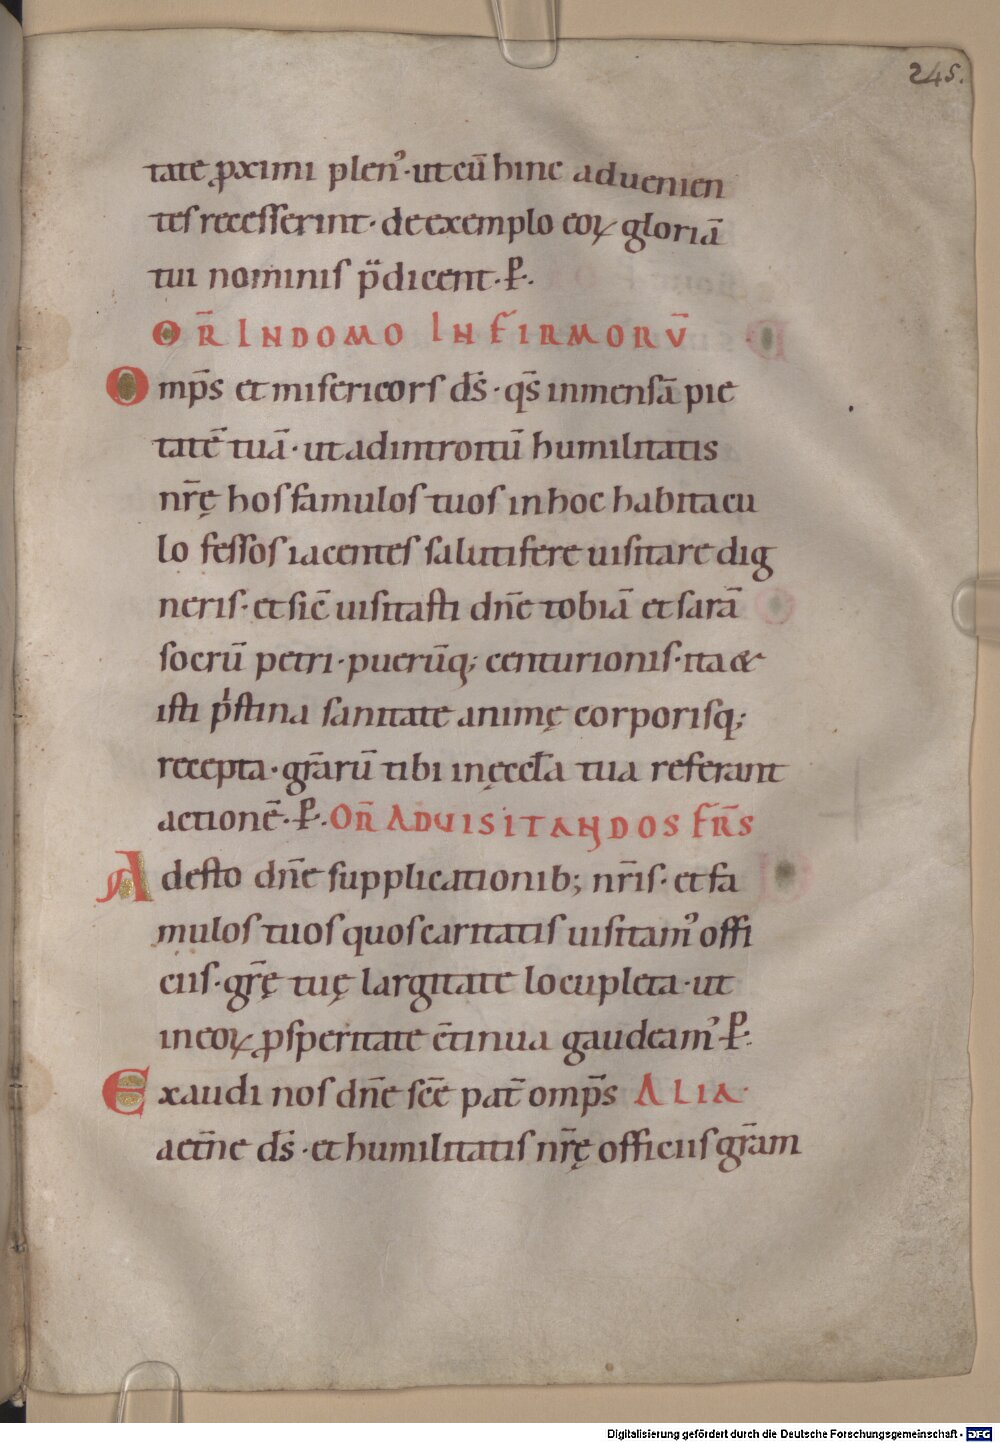 245.
tate ꝓximi plen᾽·ut cū hinc aduenien
tes recesserint· de exemplo eoꝝ gloriā
tui nominis p̄dicent·P̄·
OR̄ IN DOMO INFIRMORV̄
Omp̄s et misericors ds̄· qs̄ inmensā pie
tatē tuā· ut ad introitū humilitatis
nr̄ę hos famulos tuos in hoc habitacu
lo fessos iacentes salutifere uisitare dig
neris· et sic̄ uisitasti dn̄e tobiā et sarā
socrū petri· puerūq; centurionis· ita &
isti p͛stina sanitate animę corporisq;
recepta· gr̄arū tibi in ęccl̄a tua referant
actionē·P̄· OR̄ AD VISITANDOS FR̄S
Adesto dn̄e supplicationib; nr̄is· et fa
mulos tuos quos caritatis uisitam᾽ offi
ciis· gr̄ę tuę largitate locupleta· ut
in eoꝝ ꝓsperitate c̄tinua gaudeam᾽ P̄·
Exaudi nos dn̄e sc̄e pat̄ omp̄s ALIA·
aet̄ne ds̄· et humilitatis nr̄ę officiis gr̄am
Digitalisierung gefördert durch die Deutsche Forschungsgemeinschaft - DFG